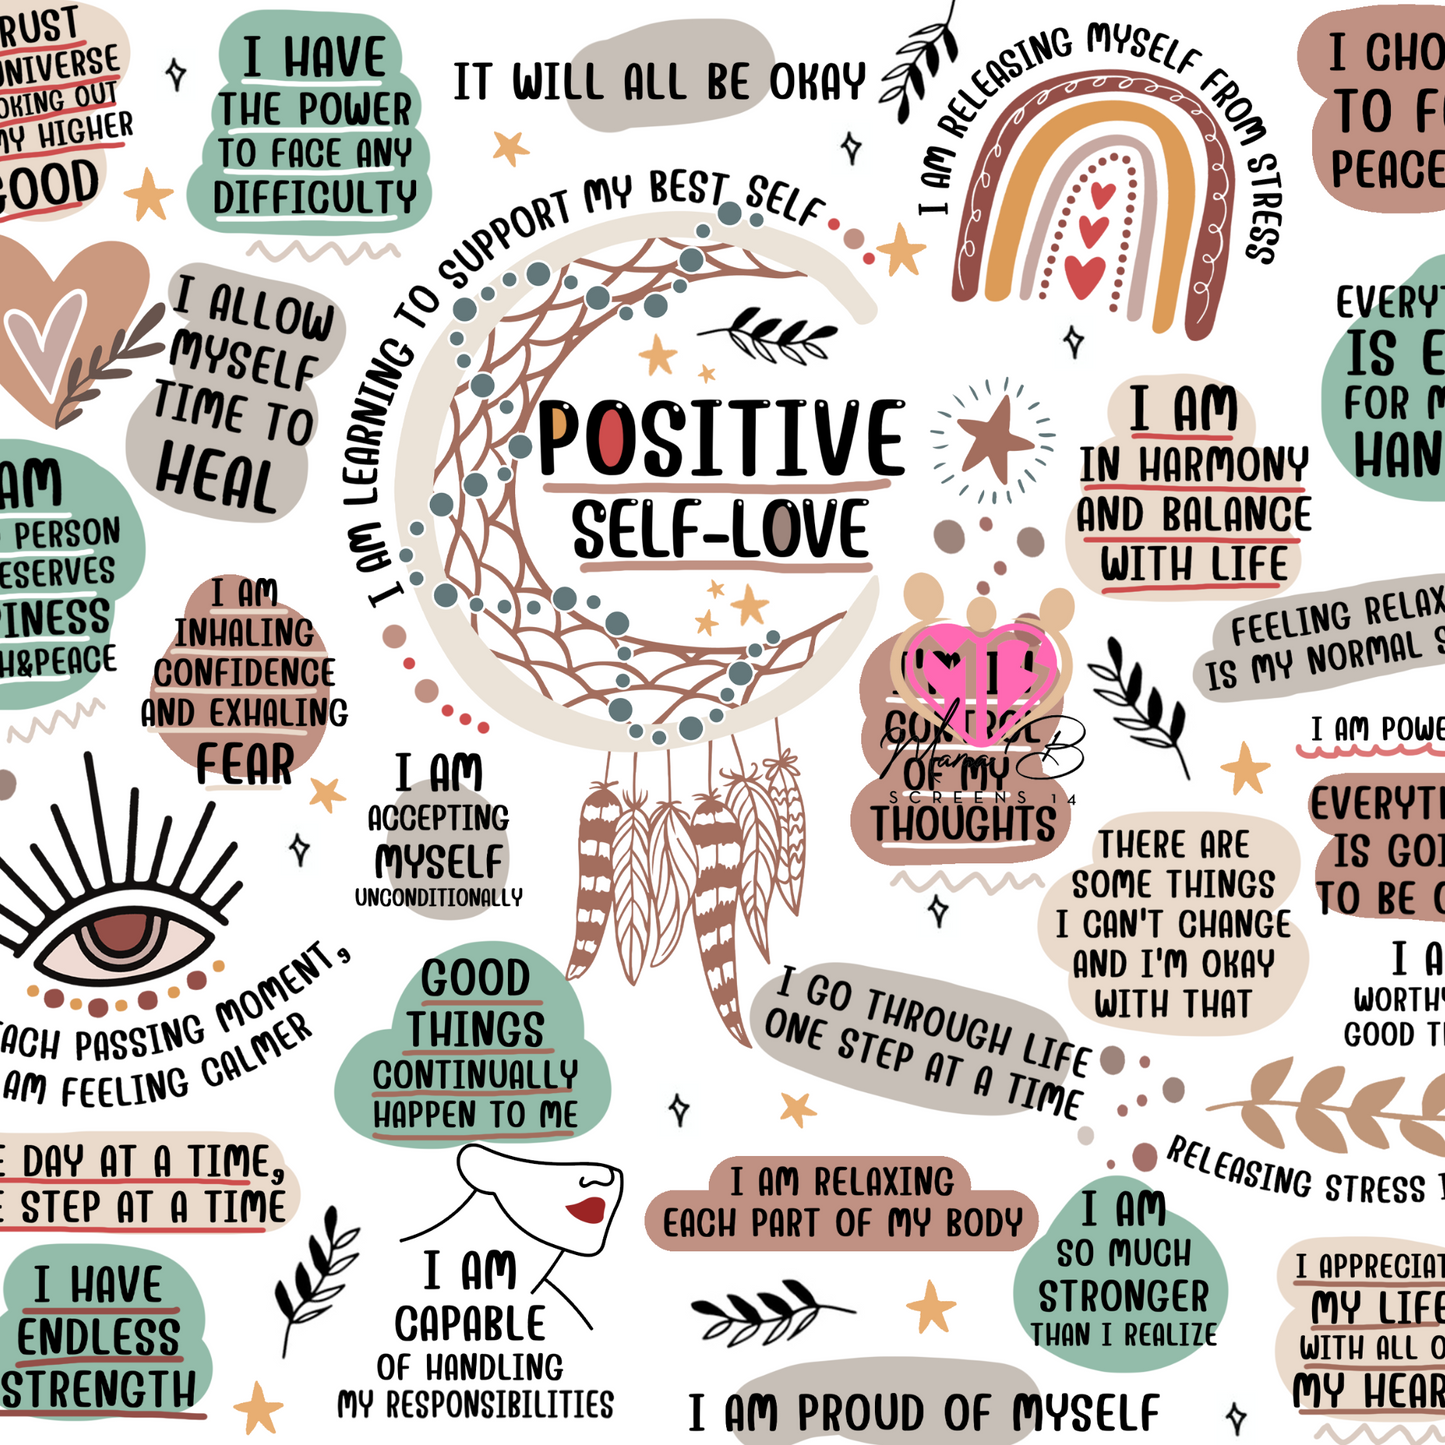 RUST
UNIVERSE
OKING OUT
MY HIGHER
GOOD
I HAVE
THE POWER
TO FACE ANY
DIFFICULTY
IT WILL ALL BE OKAY
I AM RELEASING MYSELF FROM STRESS
I CHO
TO F
PEACE
I AM LEARNING TO SUPPORT MY BEST SELF
I ALLOW
MYSELF
TIME TO
HEAL
POSITIVE
SELF-LOVE
EVERYT
IS E
FOR M
HAN
I AM
IN HARMONY
AND BALANCE
WITH LIFE
AM
PERSON
ESERVES
PINESS
H&PEACE
I AM
INHALING
CONFIDENCE
AND EXHALING
FEAR
FEELING RELAX
IS MY NORMAL S
I AM POWE
I'M IN
CONTROL
OF MY
THOUGHTS
MG
Mama B
SCREENS 14
I AM
ACCEPTING
MYSELF
UNCONDITIONALLY
EVERYTH
IS GOI
TO BE
THERE ARE
SOME THINGS
I CAN'T CHANGE
AND I'M OKAY
WITH THAT
EACH PASSING MOMENT,
AM FEELING CALMER
GOOD
THINGS
CONTINUALLY
HAPPEN TO ME
I GO THROUGH LIFE
ONE STEP AT A TIME
I A
WORTHY
GOOD T
E DAY AT A TIME,
E STEP AT A TIME
RELEASING STRESS
I AM RELAXING
EACH PART OF MY BODY
I AM
SO MUCH
STRONGER
THAN I REALIZE
I HAVE
ENDLESS
STRENGTH
I AM
CAPABLE
OF HANDLING
MY RESPONSIBILITIES
I APPRECIAT
MY LIFE
WITH ALL O
MY HEAR
I AM PROUD OF MYSELF